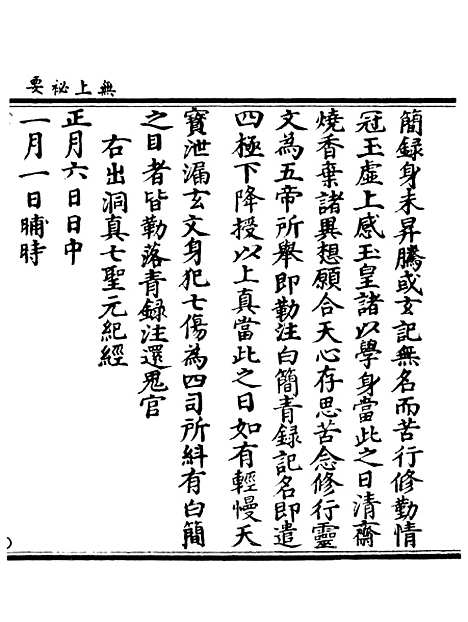 無上祕要
簡録身未昇騰或玄記無名而苦行修勤情
冠玉虛上感玉皇諸以學身當此之日清齋
燒香棄諸異想願合天心存思苦念修行靈
文為五帝所舉即勒注白簡青録記名即遣
四極下降授以上真當此之日如有輕慢天
寳泄漏玄文身犯七傷為四司所糾有白簡
之目者皆勒落青録注還鬼官
右出洞真七聖元紀經
正月六日日中
一月一日晡時